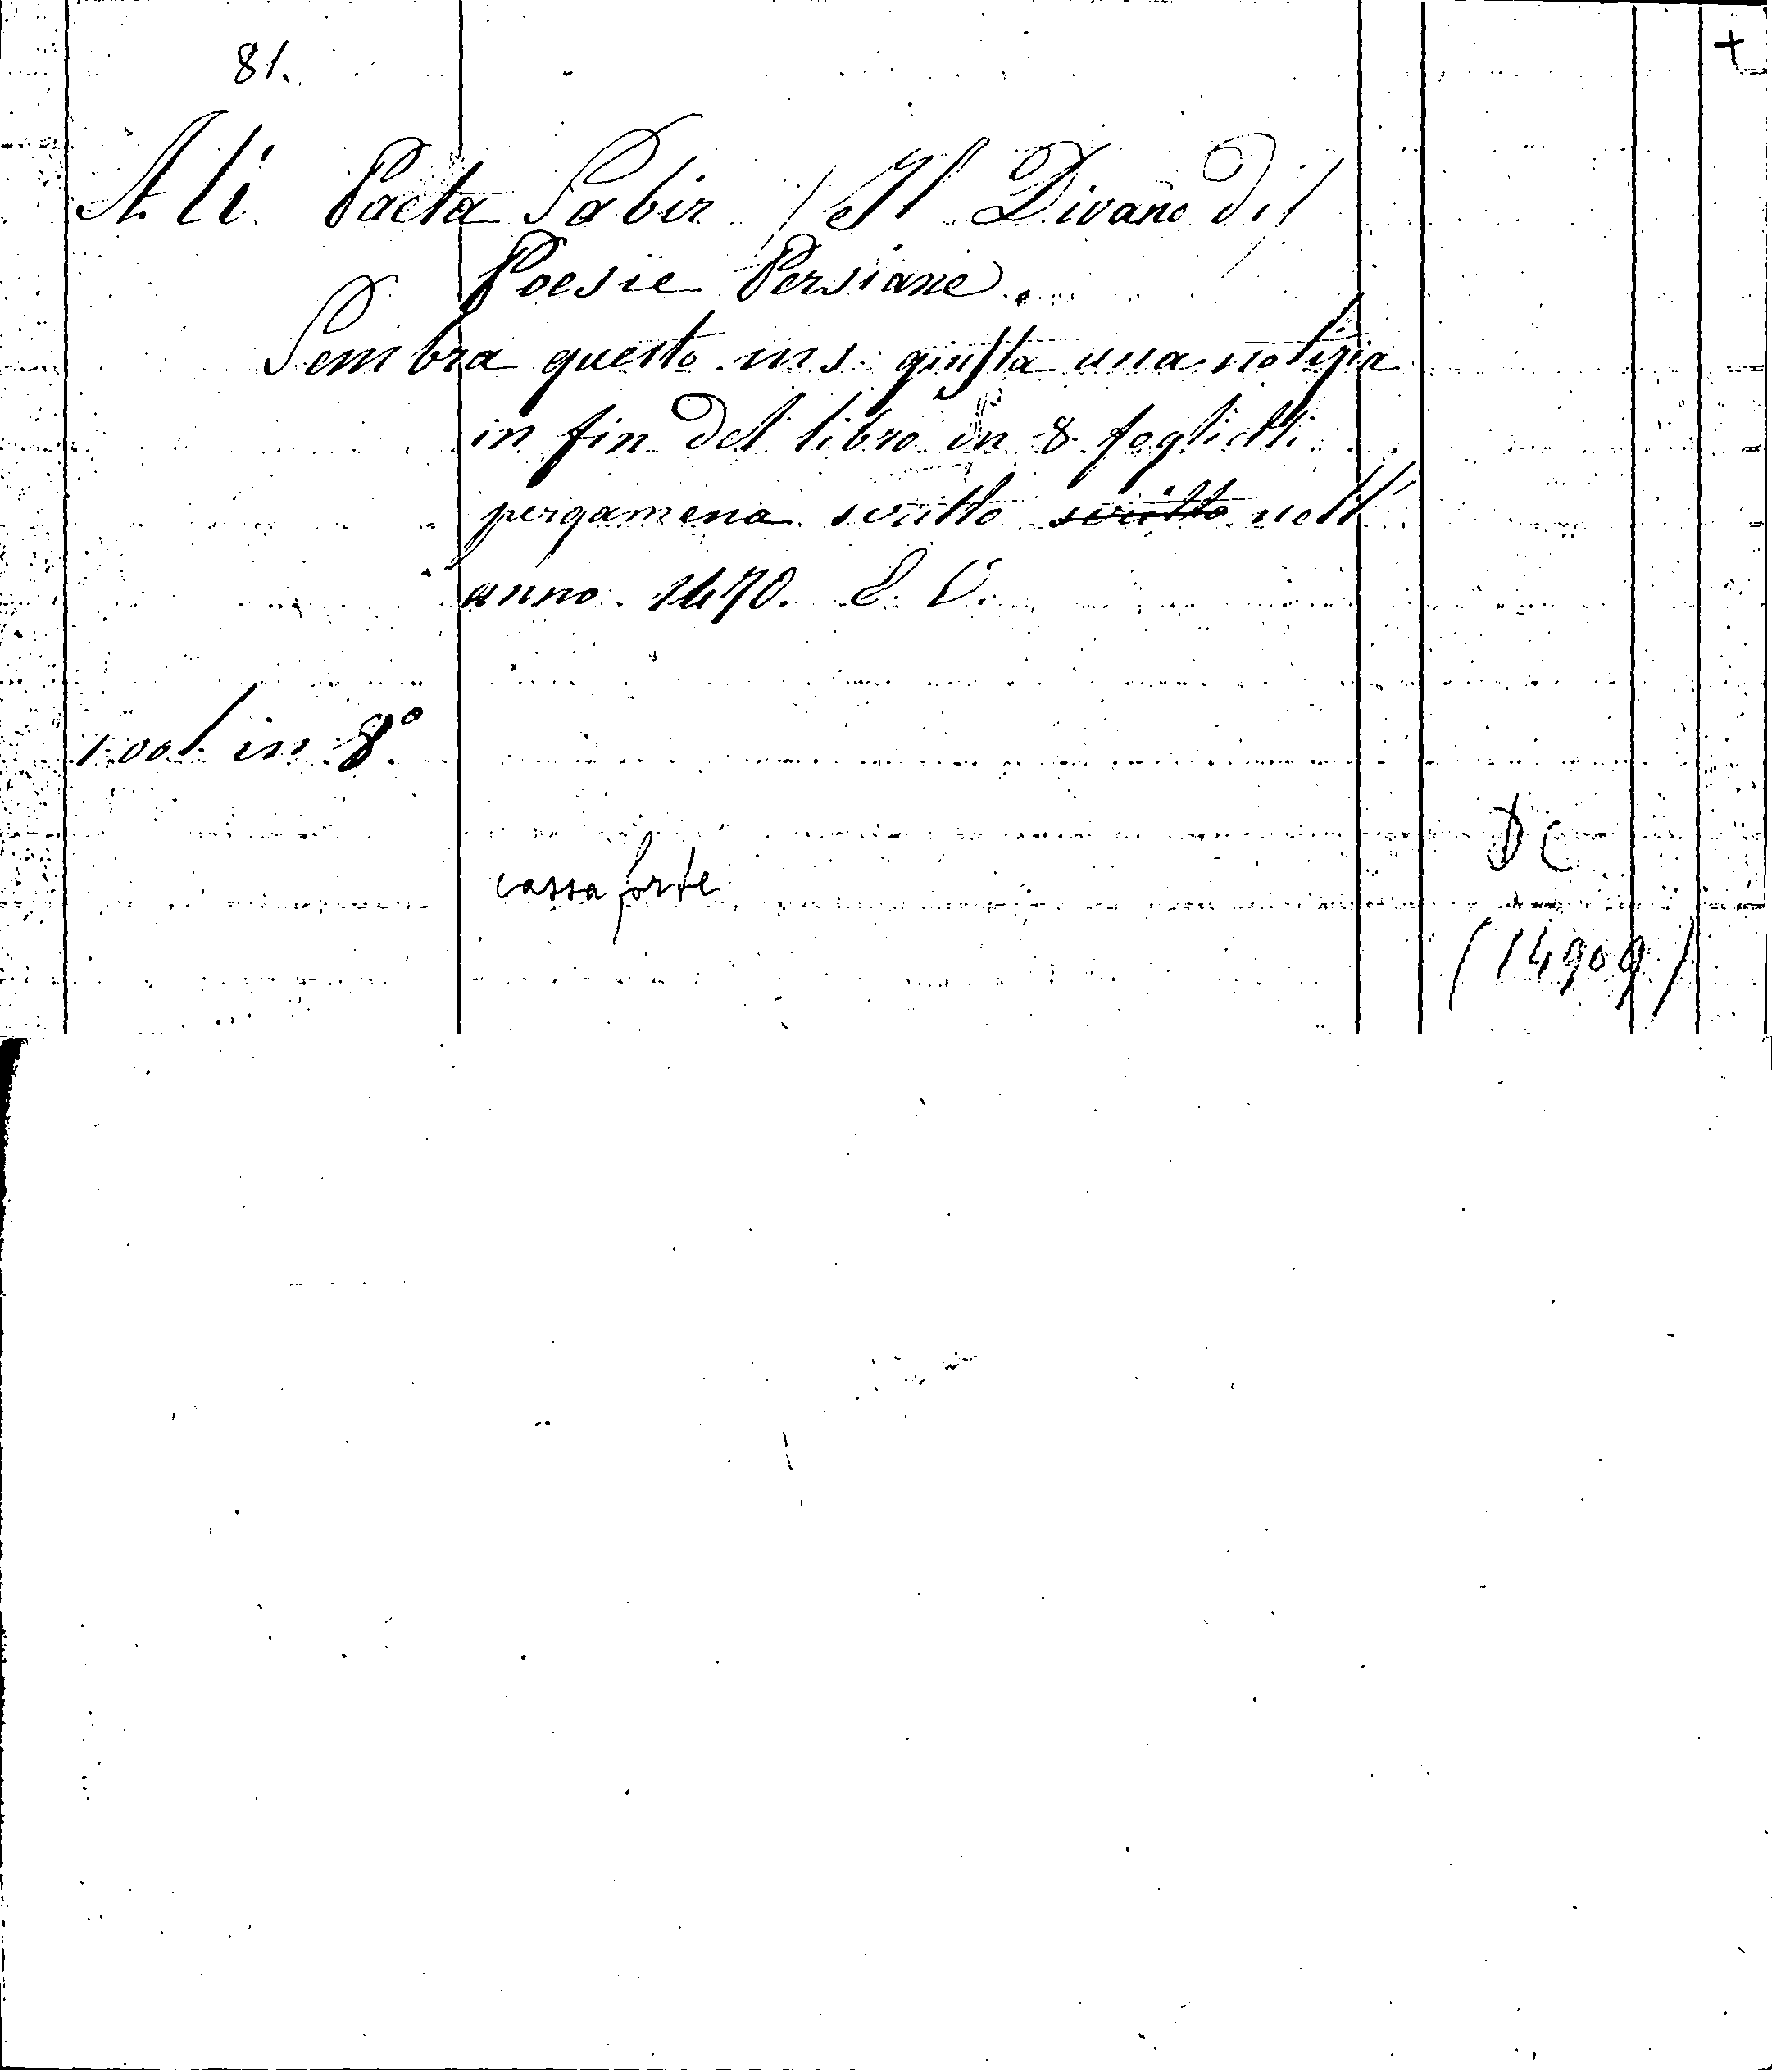 81.
+
Ali Paeta Sabir / Il Divano di /
Poesie Persiane.
Sembra questo ms. giusta una notizia
in fin del libro in 8 foglietti
pergamena scritto scritto nell'
anno 1470. E. V.
1 vol. in 8°
DC
cassa forte
(14909)